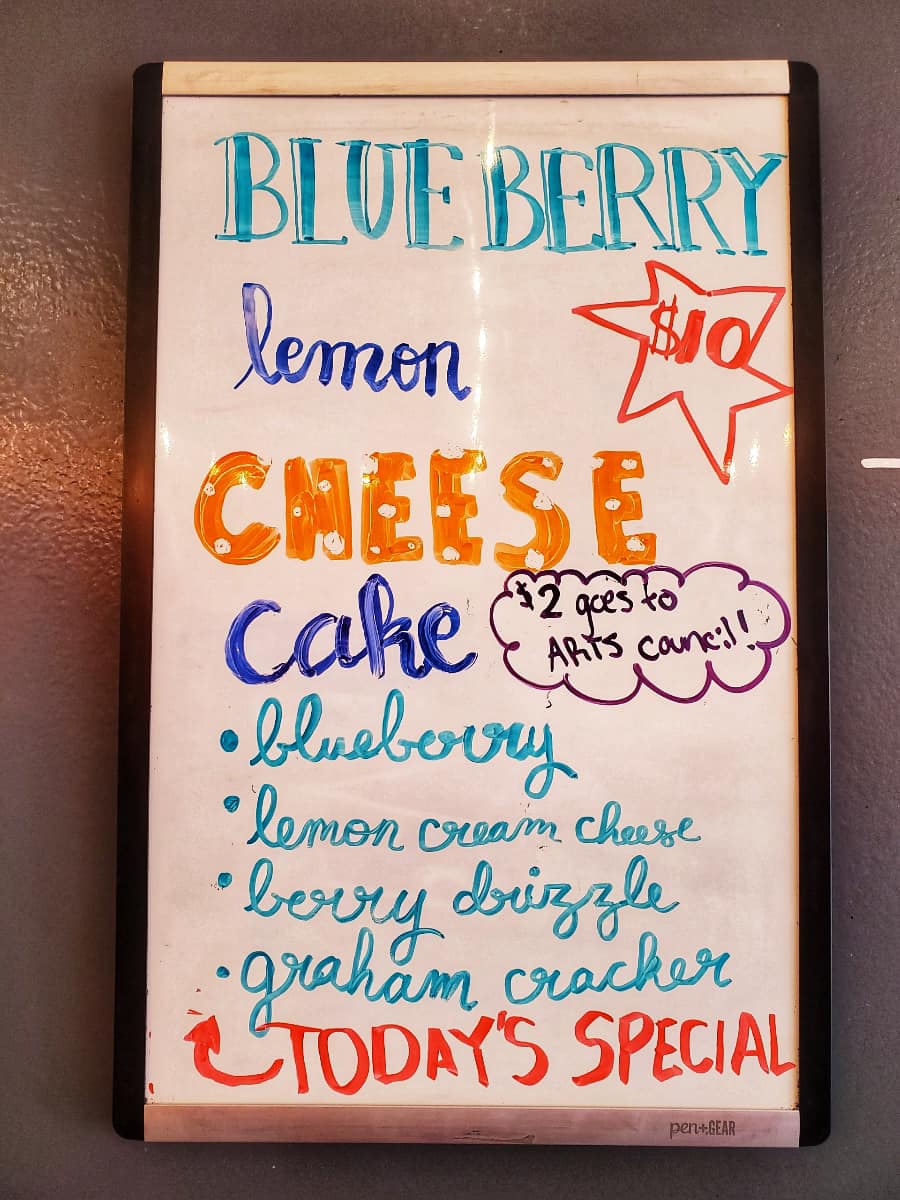 BLUEBERRY
lemon
$10
CHEESE
cake
$2 goes to
ARTS council!
• blueberry
• lemon cream cheese
• berry drizzle
• graham cracker
TODAY'S SPECIAL
pen+GEAR